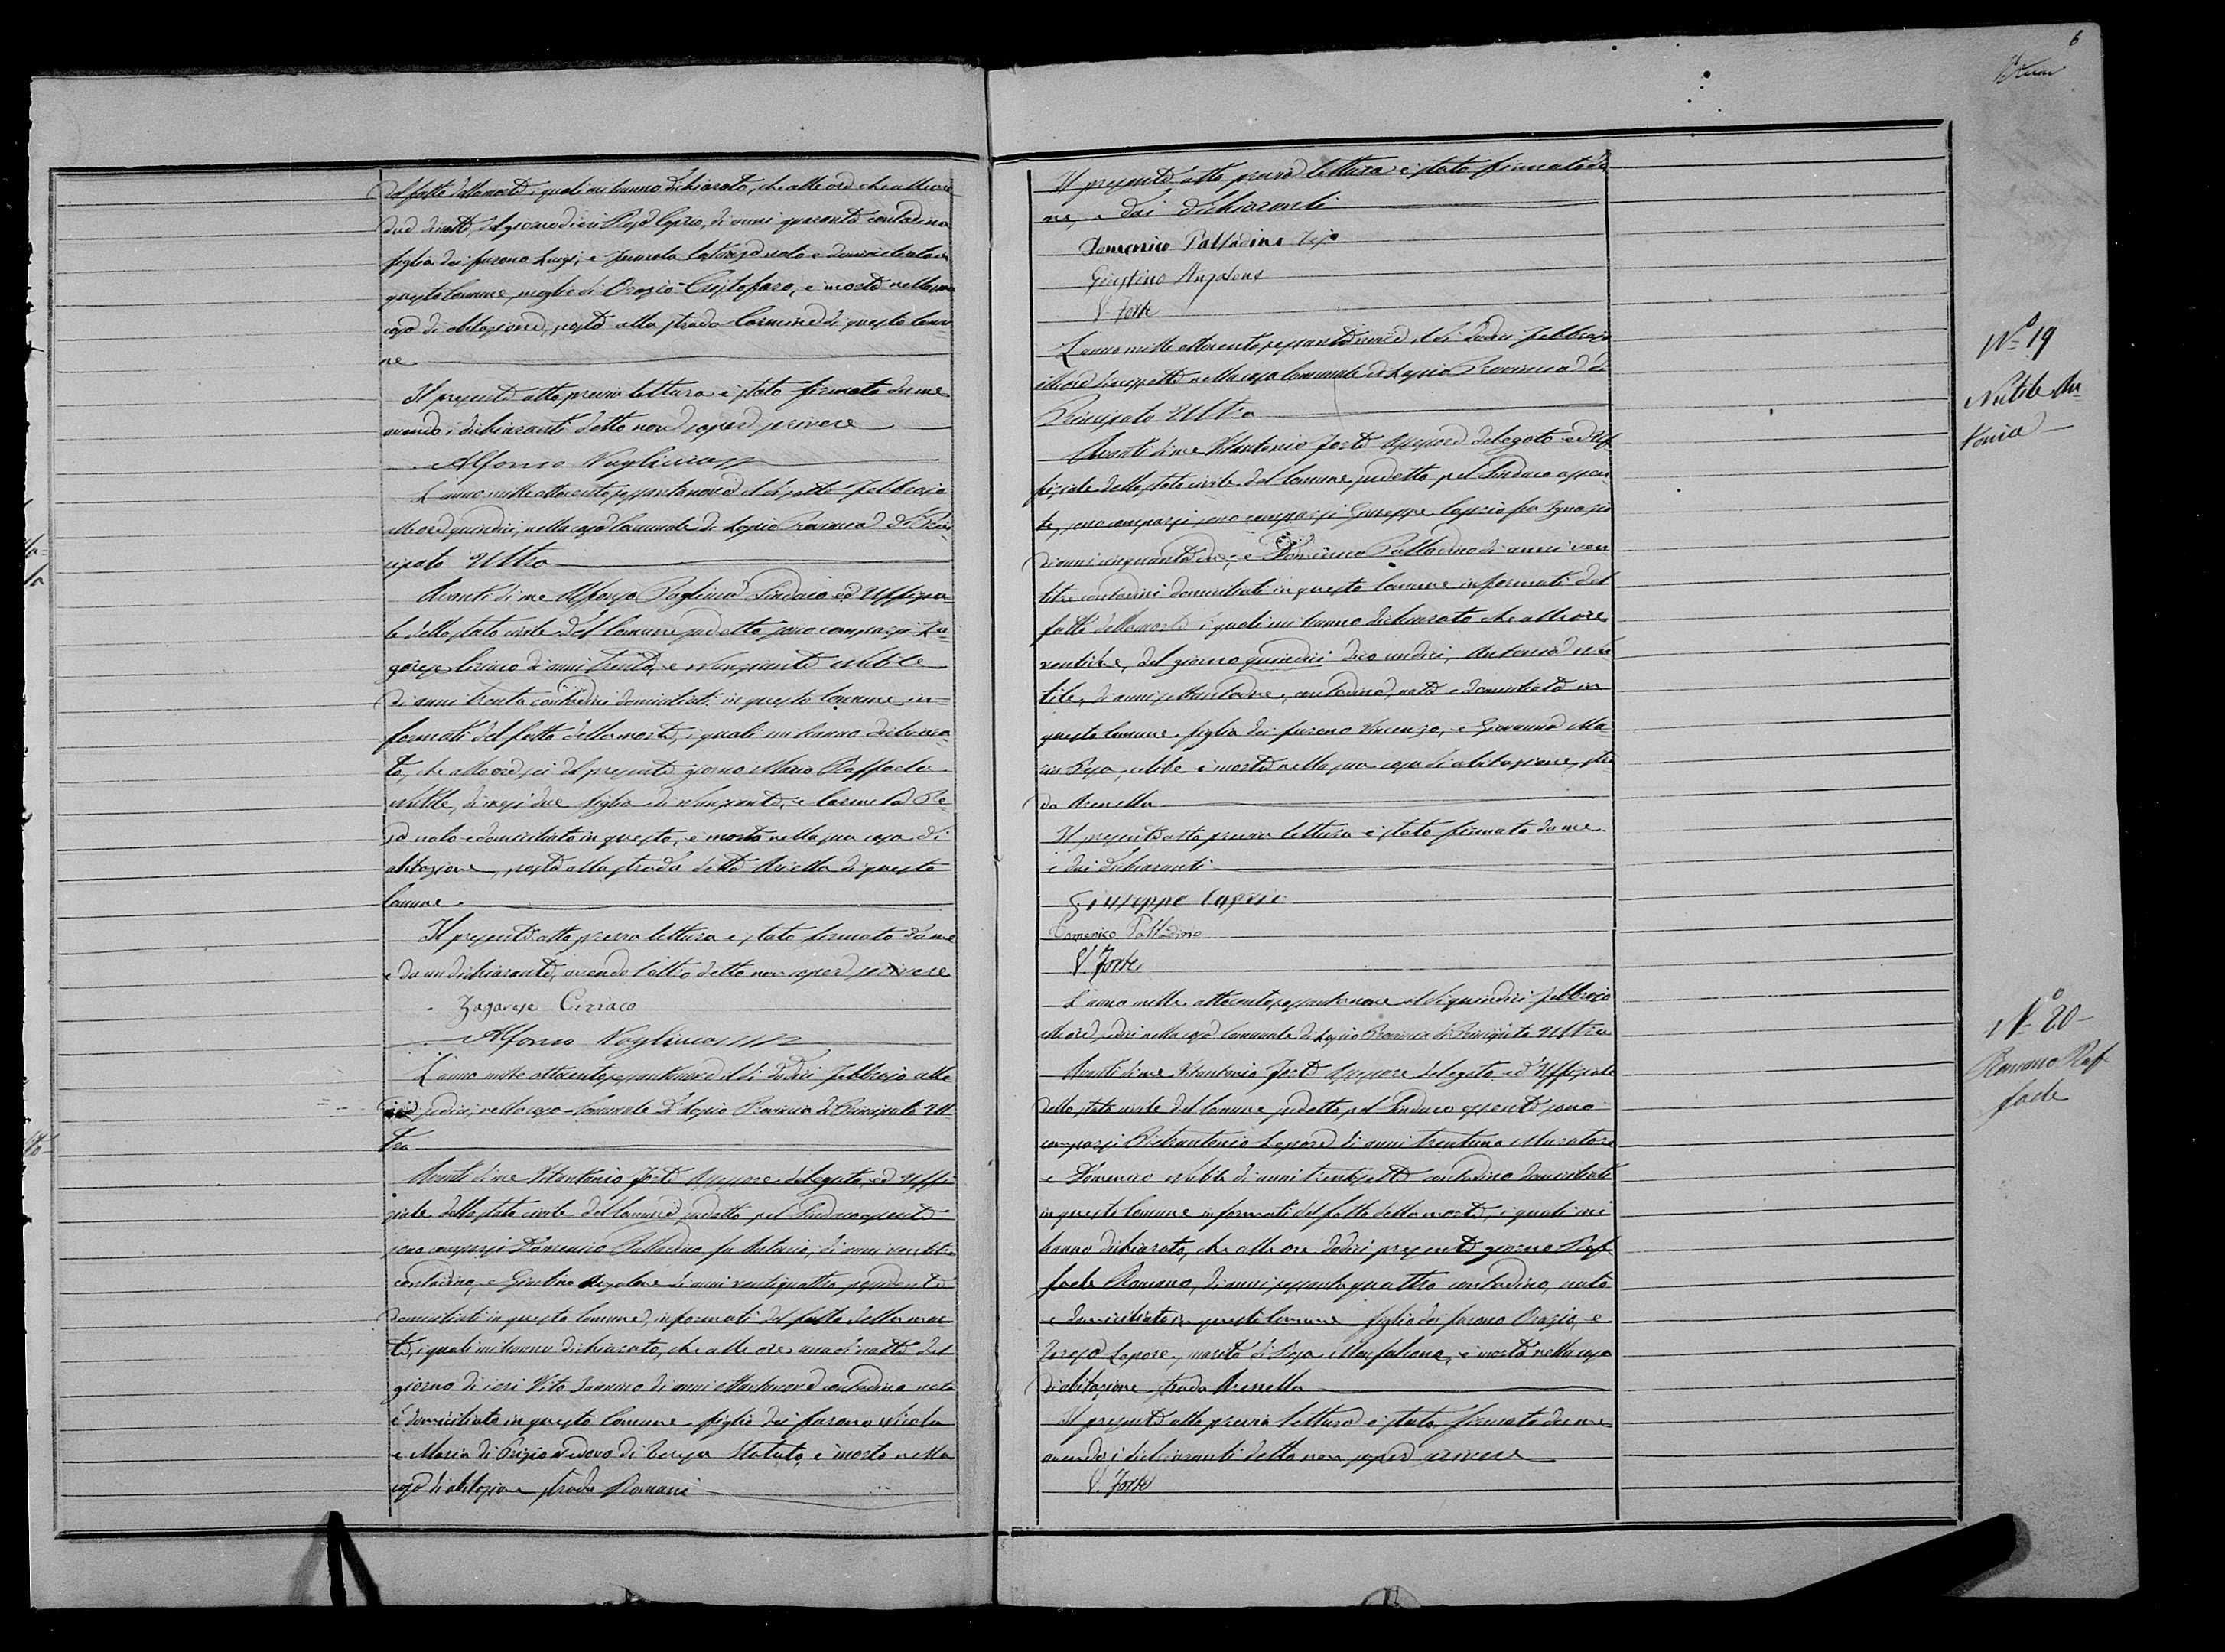 del fatto della morte, i quali mi hanno dichiarato, che alle ore che alle ore
due di notte, del giorno di ieri Rosa Caprio, di anni quaranta contadina
figlia dei furono Luigi, e nato e domiciliato in
questo Comune, moglie di Orazio Cristofaro, è morta nella sua
casa di abitazione, posta alla strada Carmine di questo Comu
ne
Il presente atto, previa lettura è stato firmato da me
avendo i dichiaranti detto non sapere scrivere
Alfonso Vagliuca
L'anno mille ottocento sessantanove il dì sette Febbrajo
alle ore quindici, nella casa Comunale di Lapio Provincia di Prin
cipato Ultra
Avanti di me Alfonso Sindaco ed Uffizia=
le dello stato civile del Comune sudetto sono comparsi Za=
garese Ciriaco di anni trenta, e Nunziante Nitile
di anni trenta contadini domiciliati in questo Comune, in=
formati del fatto della morte, i quali mi hanno dichiara=
to, che alle ore sei del presente giorno Maria Raffaela
Nitile, di mesi due figlia di Nunziante, e Carmela Re=
sa nato e domiciliato in questo, è morta nella sua casa di
abitazione, posta alla strada detta Ariella di questo
Comune.
Il presente atto previa lettura è stato firmato da me
e da un dichiarante, avendo l'altro detto non sapere scrivere
Zagarese Ciriaco
Alfonso Vagliuca
L'anno mille ottocento sessantanove il dì dodici Febbrajo alle
ore sedici, nella casa Comunale di Lapio Provincia di Principato Ul
tra
Avanti di me Vitantonio Forte Assessore delegato, ed Uffi
ziale dello stato civile del Comune sudetto pel Sindaco assente
sono comparsi Domenico Palladino fu Antonio, di anni ventitre
contadino, e Giustino Anzalone di anni ventiquattro
domiciliati in questo Comune, informati del fatto della mor
te, i quali mi hanno dichiarato, che alle ore una di notte del
giorno di ieri Vito Iannino di anni settantanove contadino nato
e domiciliato in questo Comune figlio dei furono Nicola
e Maria di Prizio vedovo di Teresa Statuto, è morto nella
casa di abitazione strada Romani
6
Il presente atto previa lettura è stato firmato da
me, e dai dichiaranti
Domenico Palladino
Giustino Anzalone
V. Forte
L'anno mille ottocento sessantanove, il dì dodici Febbrajo
alle ore diciassette nella casa Comunale di Lapio Provincia di
Principato Ultra
Avanti di me Vitantonio Forte Assessore delegato ed Uf
fiziale dello stato civile del Comune sudetto pel Sindaco assen
te, sono comparsi sono comparsi Giuseppe Caprio fu Ignazio
di anni cinquantadue, e Domenico Palladino di anni ven
titre contadini domiciliati in questo Comune informati del
fatto della morte i quali mi hanno dichiarato che alle ore
ventitre, del giorno quindici dico undici, Antonia Nu
tile, di anni settantadue, contadina, nata e domiciliata in
questo Comune figlia dei furono Vincenzo, e Giovanna Ma
ria Resa, celibe è morta nella sua casa di abitazione, stra
da Arenella
Il presente atto previa lettura è stato firmato da me
e dai dichiaranti
Giuseppe Caprio
Domenico Palladino
V. Forte
L'anno mille ottocento sessantanove il dì quindici Febbrajo
alle ore sedici nella casa Comunale di Lapio Provincia di Principato Ultra
Avanti di me Vitantonio Forte Assessore delegato ed Uffiziale
dello stato civile del Comune sudetto pel Sindaco assente sono
comparsi Pietrantonio Lepore di anni trentuno Muratore
e Domenico Nitile di anni trentasette contadino domiciliati
in questo Comune informati del fatto della morte, i quali mi
hanno dichiarato, che alle ore dodici presente giorno Raf
faele Romano, di anni sessantaquattro contadino, nato
e domiciliato in questo Comune figlio dei furono Orazio, e
Teresa Lepore, marito di Rosa Monfalcone, è morto nella casa
di abitazione strada Arenella
Il presente atto previa lettura è stato firmato da me
avendo i dichiaranti detto non sapere scrivere
V. Forte
No 19
Nutile An=
tonia
No 20
Romano Raf
faele